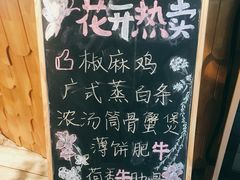 花开热卖
凸椒麻鸡
广式蒸白条
浓汤筒骨蟹煲
薄饼肥牛
荷香牛肋骨